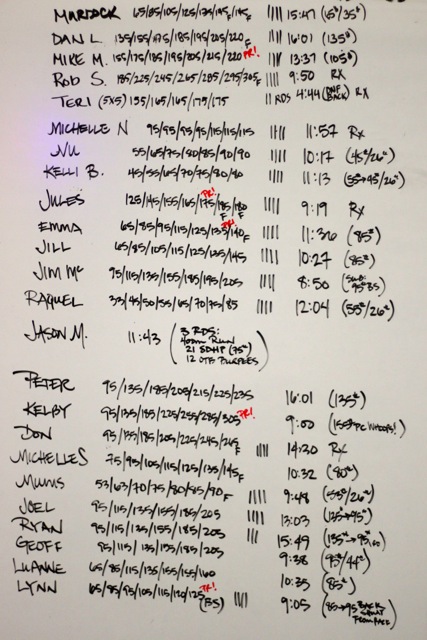 MURDOCK 65/85/105/125/135/145/145F |||| 15:47 (45#/35#)
DAN L. 135/155/175/185/195/205/220F |||| 16:01 (135#)
MIKE M. 155/175/185/195/205/215/220 PR! |||| 13:37 (105#)
ROB S. 185/225/245/265/285/295/305F |||| 9:50 RX
TERI (5x5) 155/165/165/175/175 || RDS 4:44 (DNF BACK) RX
MICHELLE N 95/95/95/95/115/115/115 |||| 11:57 Rx
NU 55/65/75/80/85/90/90 |||| 10:17 (45#/26#)
KELLI B. 45/55/65/70/75/80/80 |||| 11:13 (35→45#/26#)
JULES 125/145/155/165/175/185F/180F PR! |||| 9:19 Rx
EMMA 65/85/95/115/125/135/140F PR! |||| 11:36 (85#)
JILL 65/85/105/115/125/135/145 |||| 10:27 (85#)
JIM MC 95/115/135/155/185/195/205 |||| 8:50 (SUB: 95# 35)
RAQUEL 33/45/50/55/65/70/75/85 |||| 12:04 (55#/26#)
JASON M. 11:43 (3 RDS:
400m RUN
21 SDHP (75#)
12 OTB BURPEES)
PETER 95/135/185/205/215/225/235 16:01 (135#)
KELBY 95/135/185/225/255/285/305 PR! 9:00 (155# PC WHOOPS!)
DON 95/135/185/205/225/245/265F |||| 14:30 Rx
MICHELLE S 75/95/105/115/125/135/145F 10:32 (80#)
MUMS 53/63/70/75/80/85/90F |||| 9:48 (55#/26#)
JOEL 95/115/135/155/185/205 |||| 13:03 (135→95#)
RYAN 95/115/135/155/185/205 ||| 15:49 (135#→95#)
GEOFF 95/115/135/135/185/205 9:38 (95#/44#)
LUANNE 65/85/115/135/155/155/160 10:35 (85#)
LYNN 65/85/95/105/115/120/125 PR! (BS) |||| 9:05 (85→95 BACK SQUAT FROM RACK)